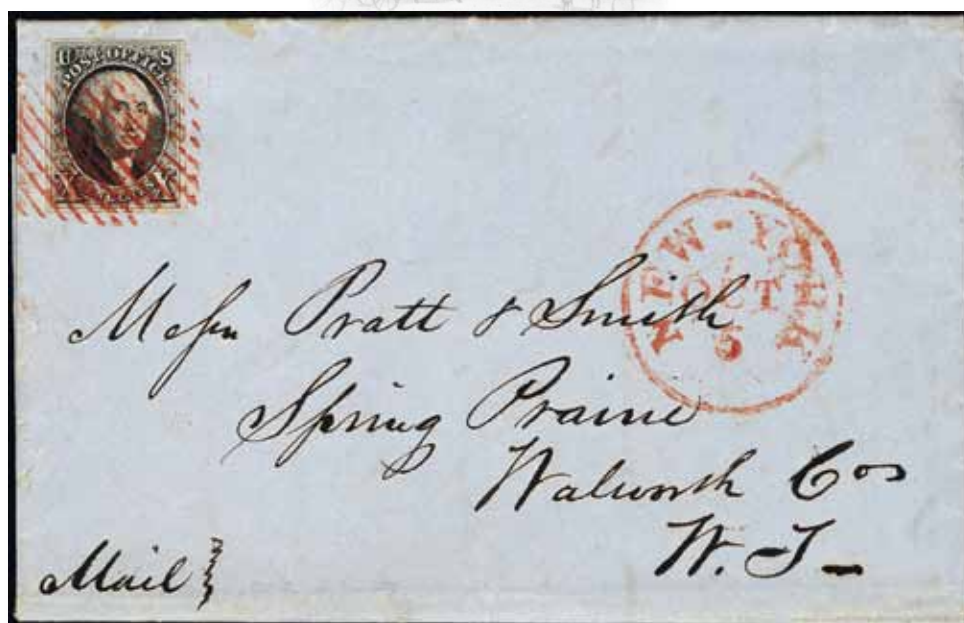 U S
POST OFFICE
X X
NEW-YORK
OCT
5
Messrs Pratt & Smith
Spring Prairie
Walworth Co
W. T
Mail